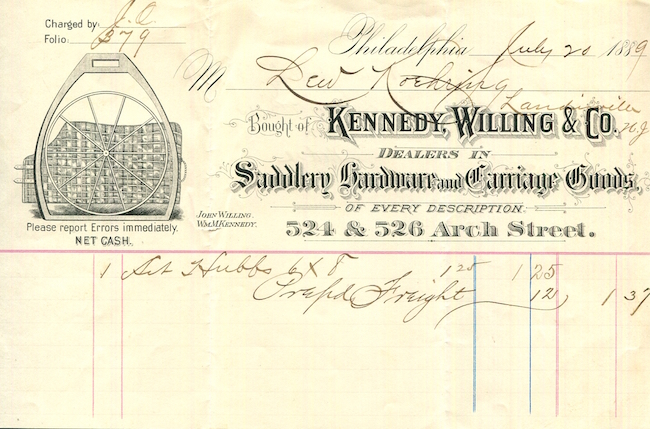 Charged by: J.O.
Folio: 579
Philadelphia July 20 1889
M Lew Koehring
Landisville N.J
Bought of KENNEDY, WILLING & CO.
DEALERS IN
Saddlery Hardware and Carriage Goods,
OF EVERY DESCRIPTION.
JOHN WILLING.
WM. M. KENNEDY.
524 & 526 Arch Street.
Please report Errors immediately.
NET CASH.
1 Set Hubbs 6 X 8 1 25 1 25
Prepd Freight 12 1 37